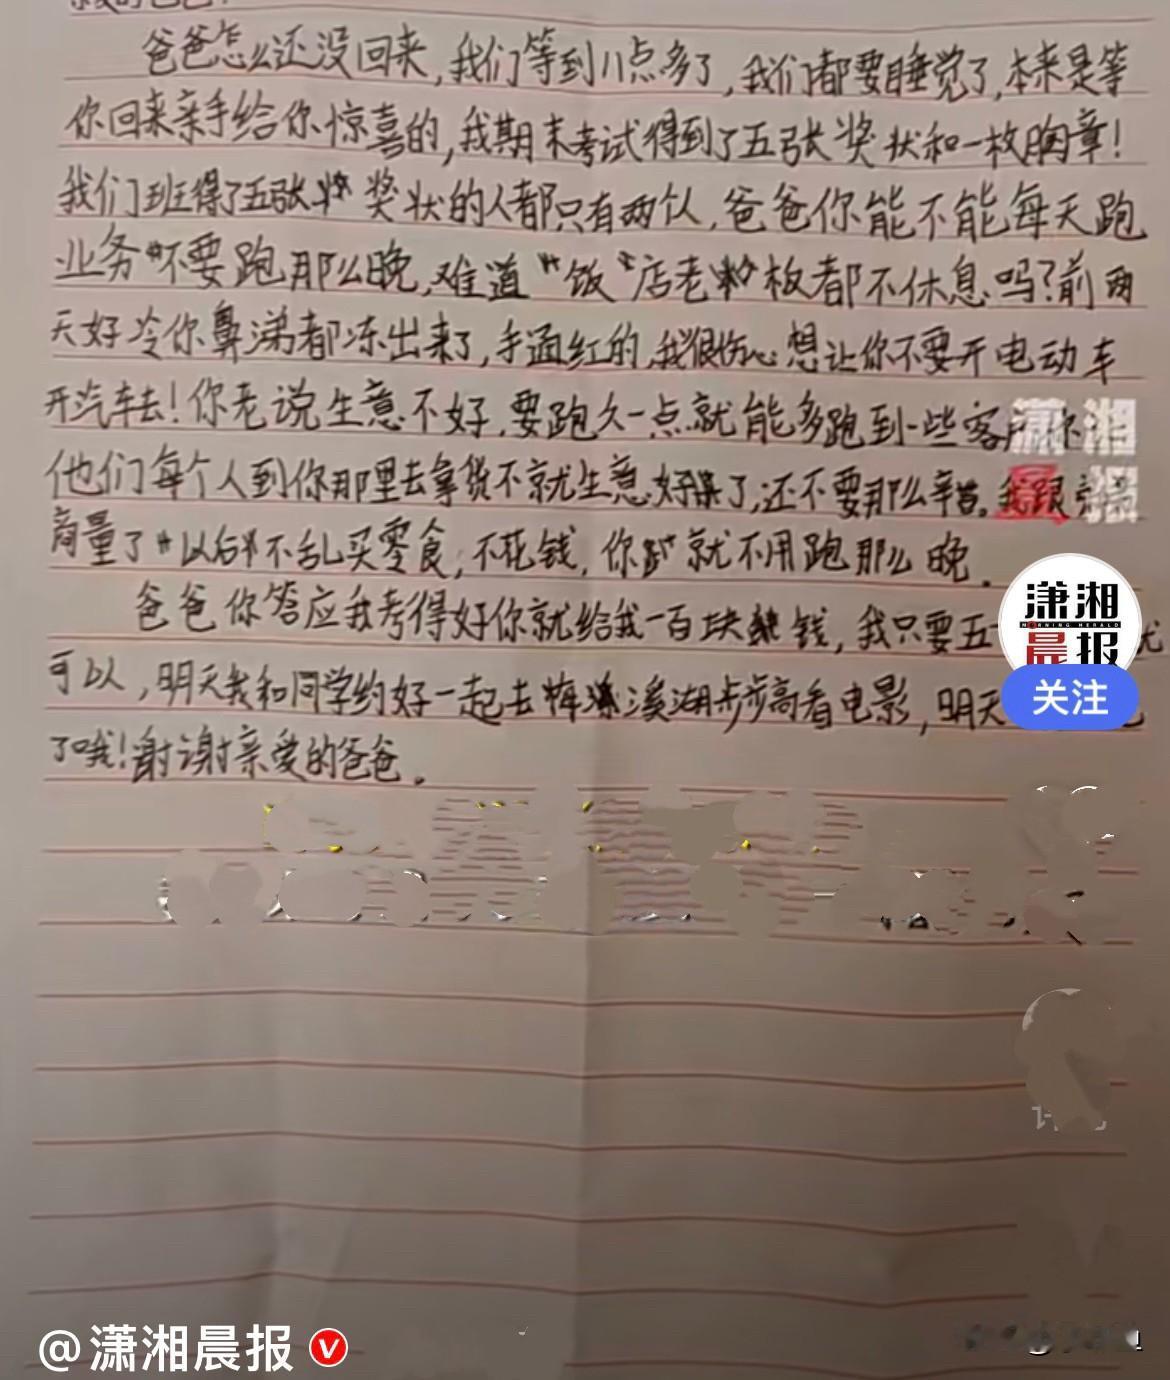 爸爸怎么还没回来,我们等到11点多了,我们都要睡觉了,本来是等
你回来亲手给你惊喜的,我期末考试得到了五张奖状和一枚胸章!
我们班得了五张奖状的人都只有两个人,爸爸你能不能每天跑
业务不要跑那么晚,难道饭店老板都不休息吗?前两
天好冷你鼻涕都冻出来了,手通红的,我很伤心想让你不要开电动车
开汽车去!你老说生意不好,要跑久一点就能多跑到一些客户,你
他们每个人到你那里去拿货不就生意好集了,还不要那么辛苦。我跟
商量了以后不乱买零食,不花钱,你就不用跑那么晚。
爸爸你答应我考得好你就给我一百块钱,我只要五
可以,明天我和同学约好一起去梅溪湖步步高看电影,明天
了哦!谢谢亲爱的爸爸。
潇湘
晨报
潇湘
MORNING HERALD
晨报
关注
@潇湘晨报